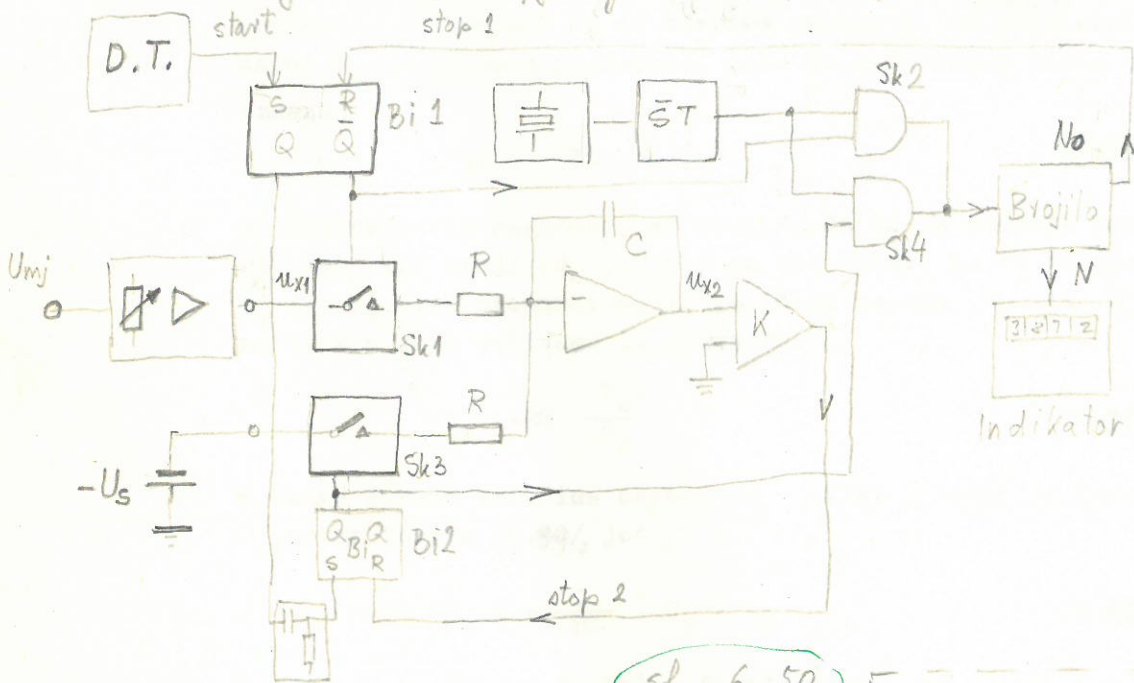 start
stop 1
D.T.
S R
Q Q̅
Bi 1
S̅T
Sk2
Sk4
No
N
Brojilo
N
3 8 7 2
Indikator
Umj
ux1
Sk1
R
C
ux2
K
R
Sk3
-Us
Q Bi Q
S R
Bi2
stop 2
sl. 6. 50